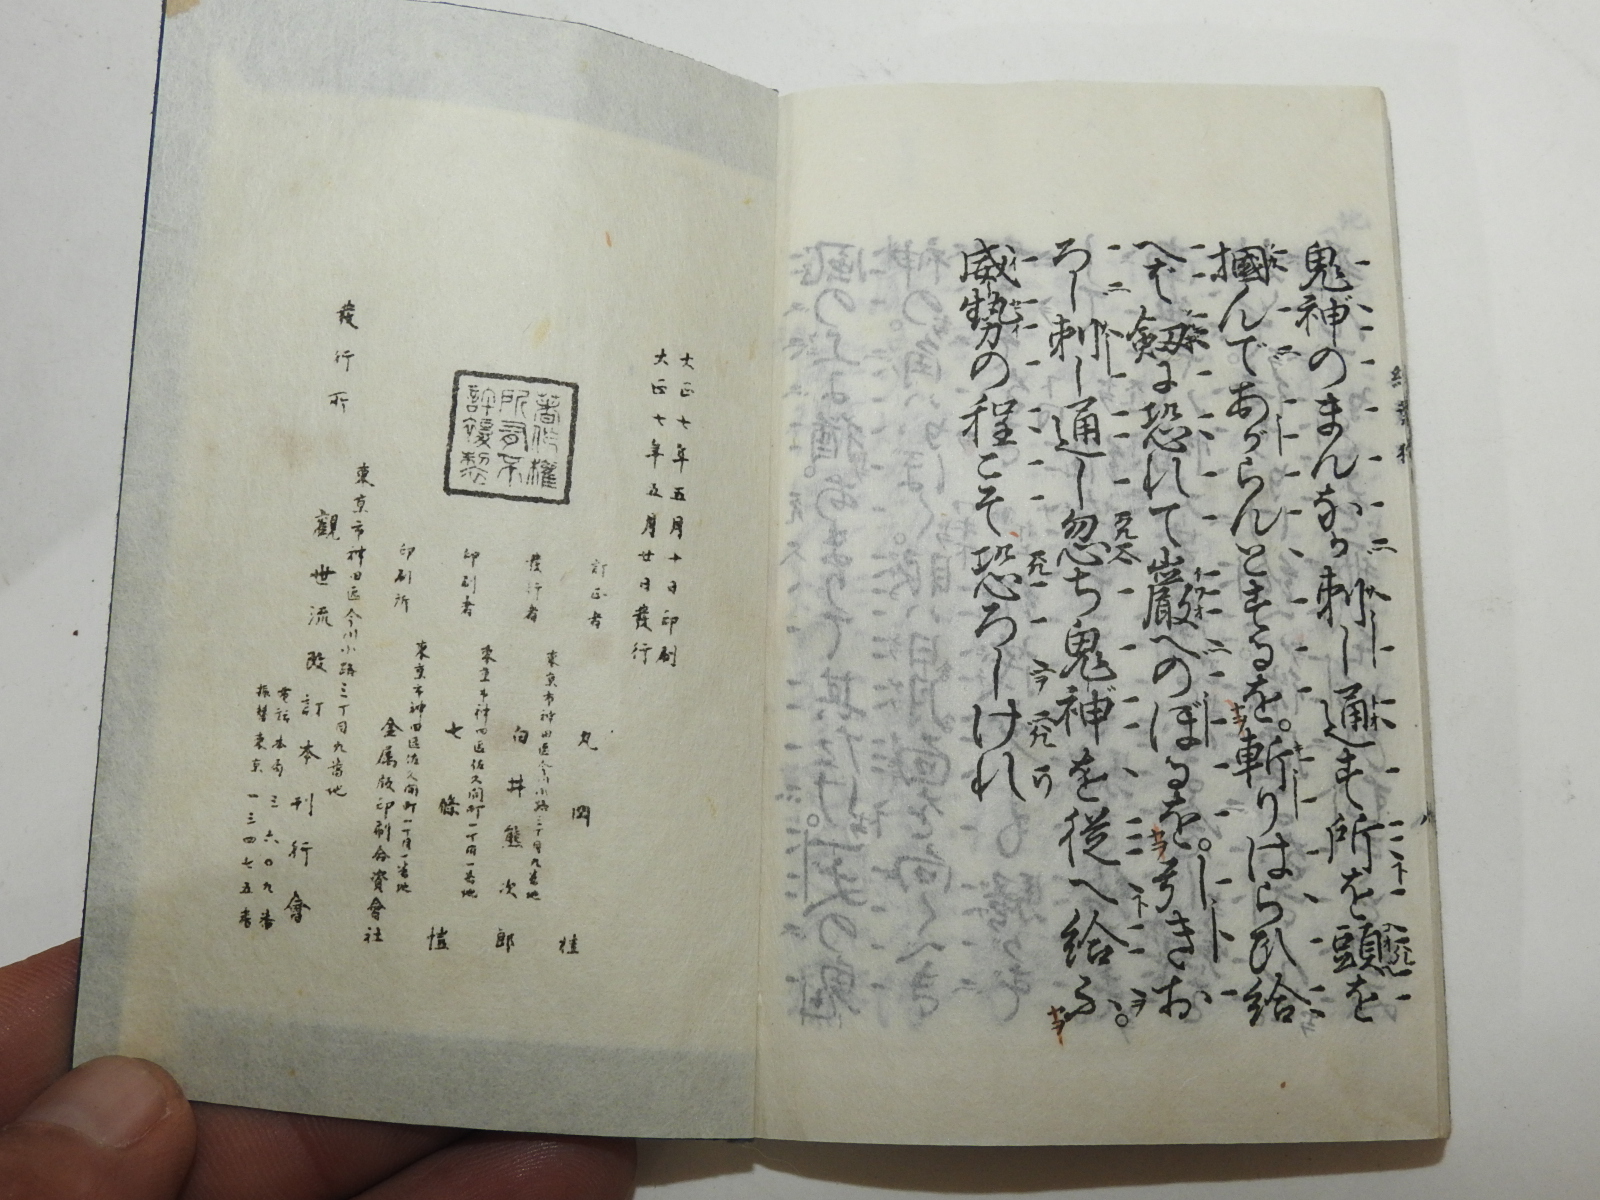 鬼神のまん 刺し通す所を頭を
摑んであがらんとするを。斬りはらひ給
へば劔に恐れて巌へのぼるを。引きお
ろし刺し通し忽ち鬼神を従へ給ふ。
威勢の程こそ恐ろしけれ
大正七年五月十日印刷
大正七年五月廿日發行
訂正者 丸岡桂
東京市神田區今川小路三丁目九番地
發行者 白井熊次郎
東京市神田區佐久間町一丁目一番地
印刷者 七條愷
東京市神田區佐久間町一丁目一番地
印刷所 金属版印刷合資會社
著作權
所有不
許複製
東京市神田區今川小路三丁目九番地
發行所 觀世流改訂本刊行會
電話本局三六〇九番
振替東京一三四七五番